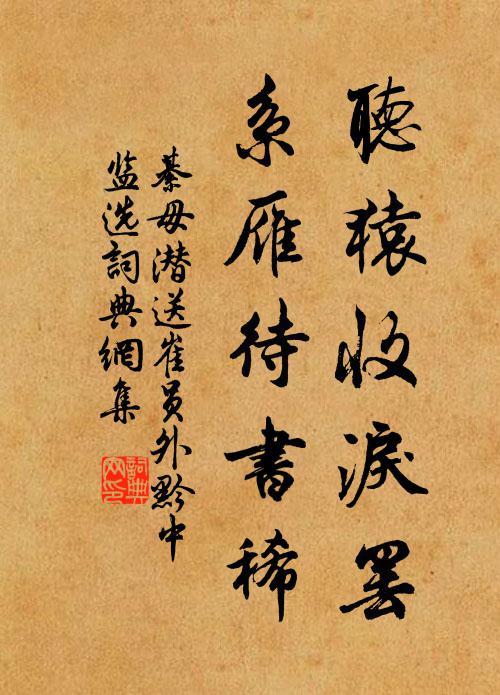 聽猿收淚罷
系雁待書稀
綦毋潜送崔員外黔中
监选詞典網集
詞典